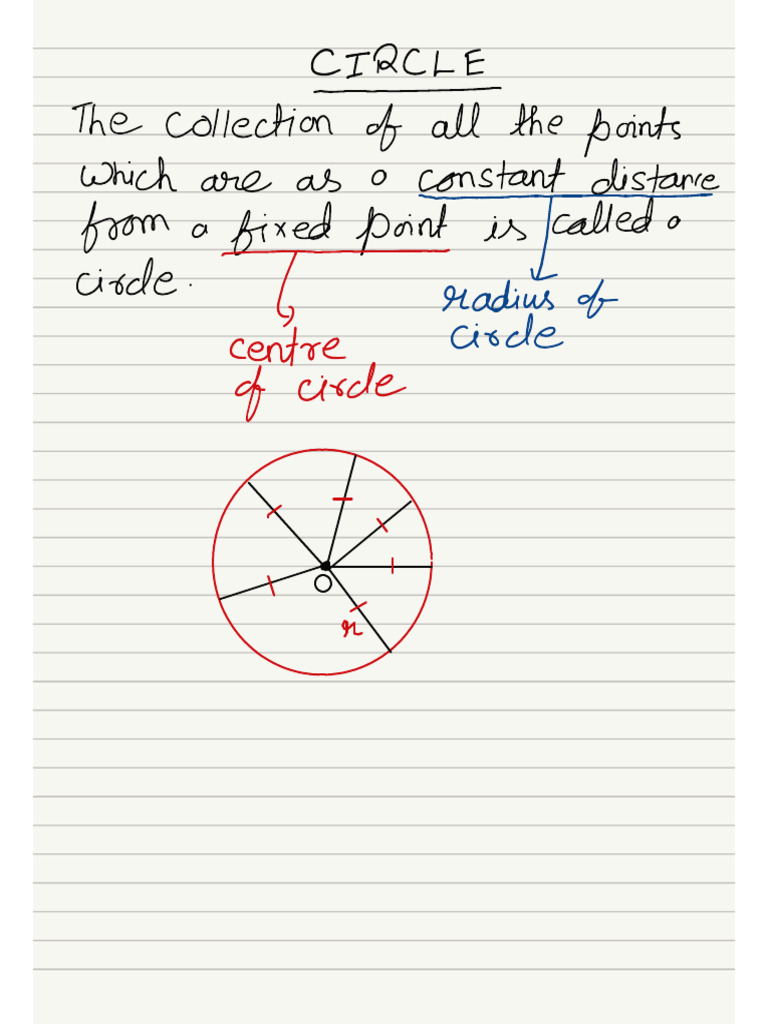 CIRCLE
The collection of all the points
which are as a constant distance
from a fixed point is called a
circle.
radius of
circle
centre
of circle
O
r